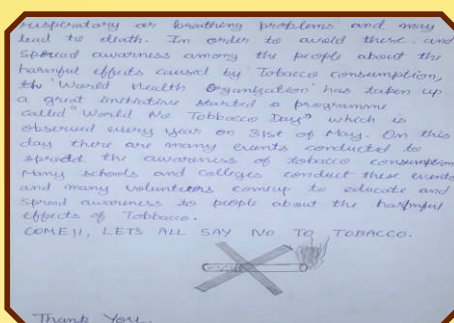 respiratory or breathing problems and may
lead to death. In order to avoid these and
spread awareness among the people about the
harmful effects caused by Tobacco consumption,
the 'World Health Organization' has taken up
a great initiative started a programme
called "World No Tobbacco Day" which is
observed every year on 31st of May. On this
day there are many events conducted to
spredd the awareness of tobacco consumption
Many schools and colleges conduct these events
and many volunteers comeup to educate and
spread awareness to people about the harmful
effects of Tobbacco.
COME!!, LETS ALL SAY NO TO TOBACCO.
Thank You.